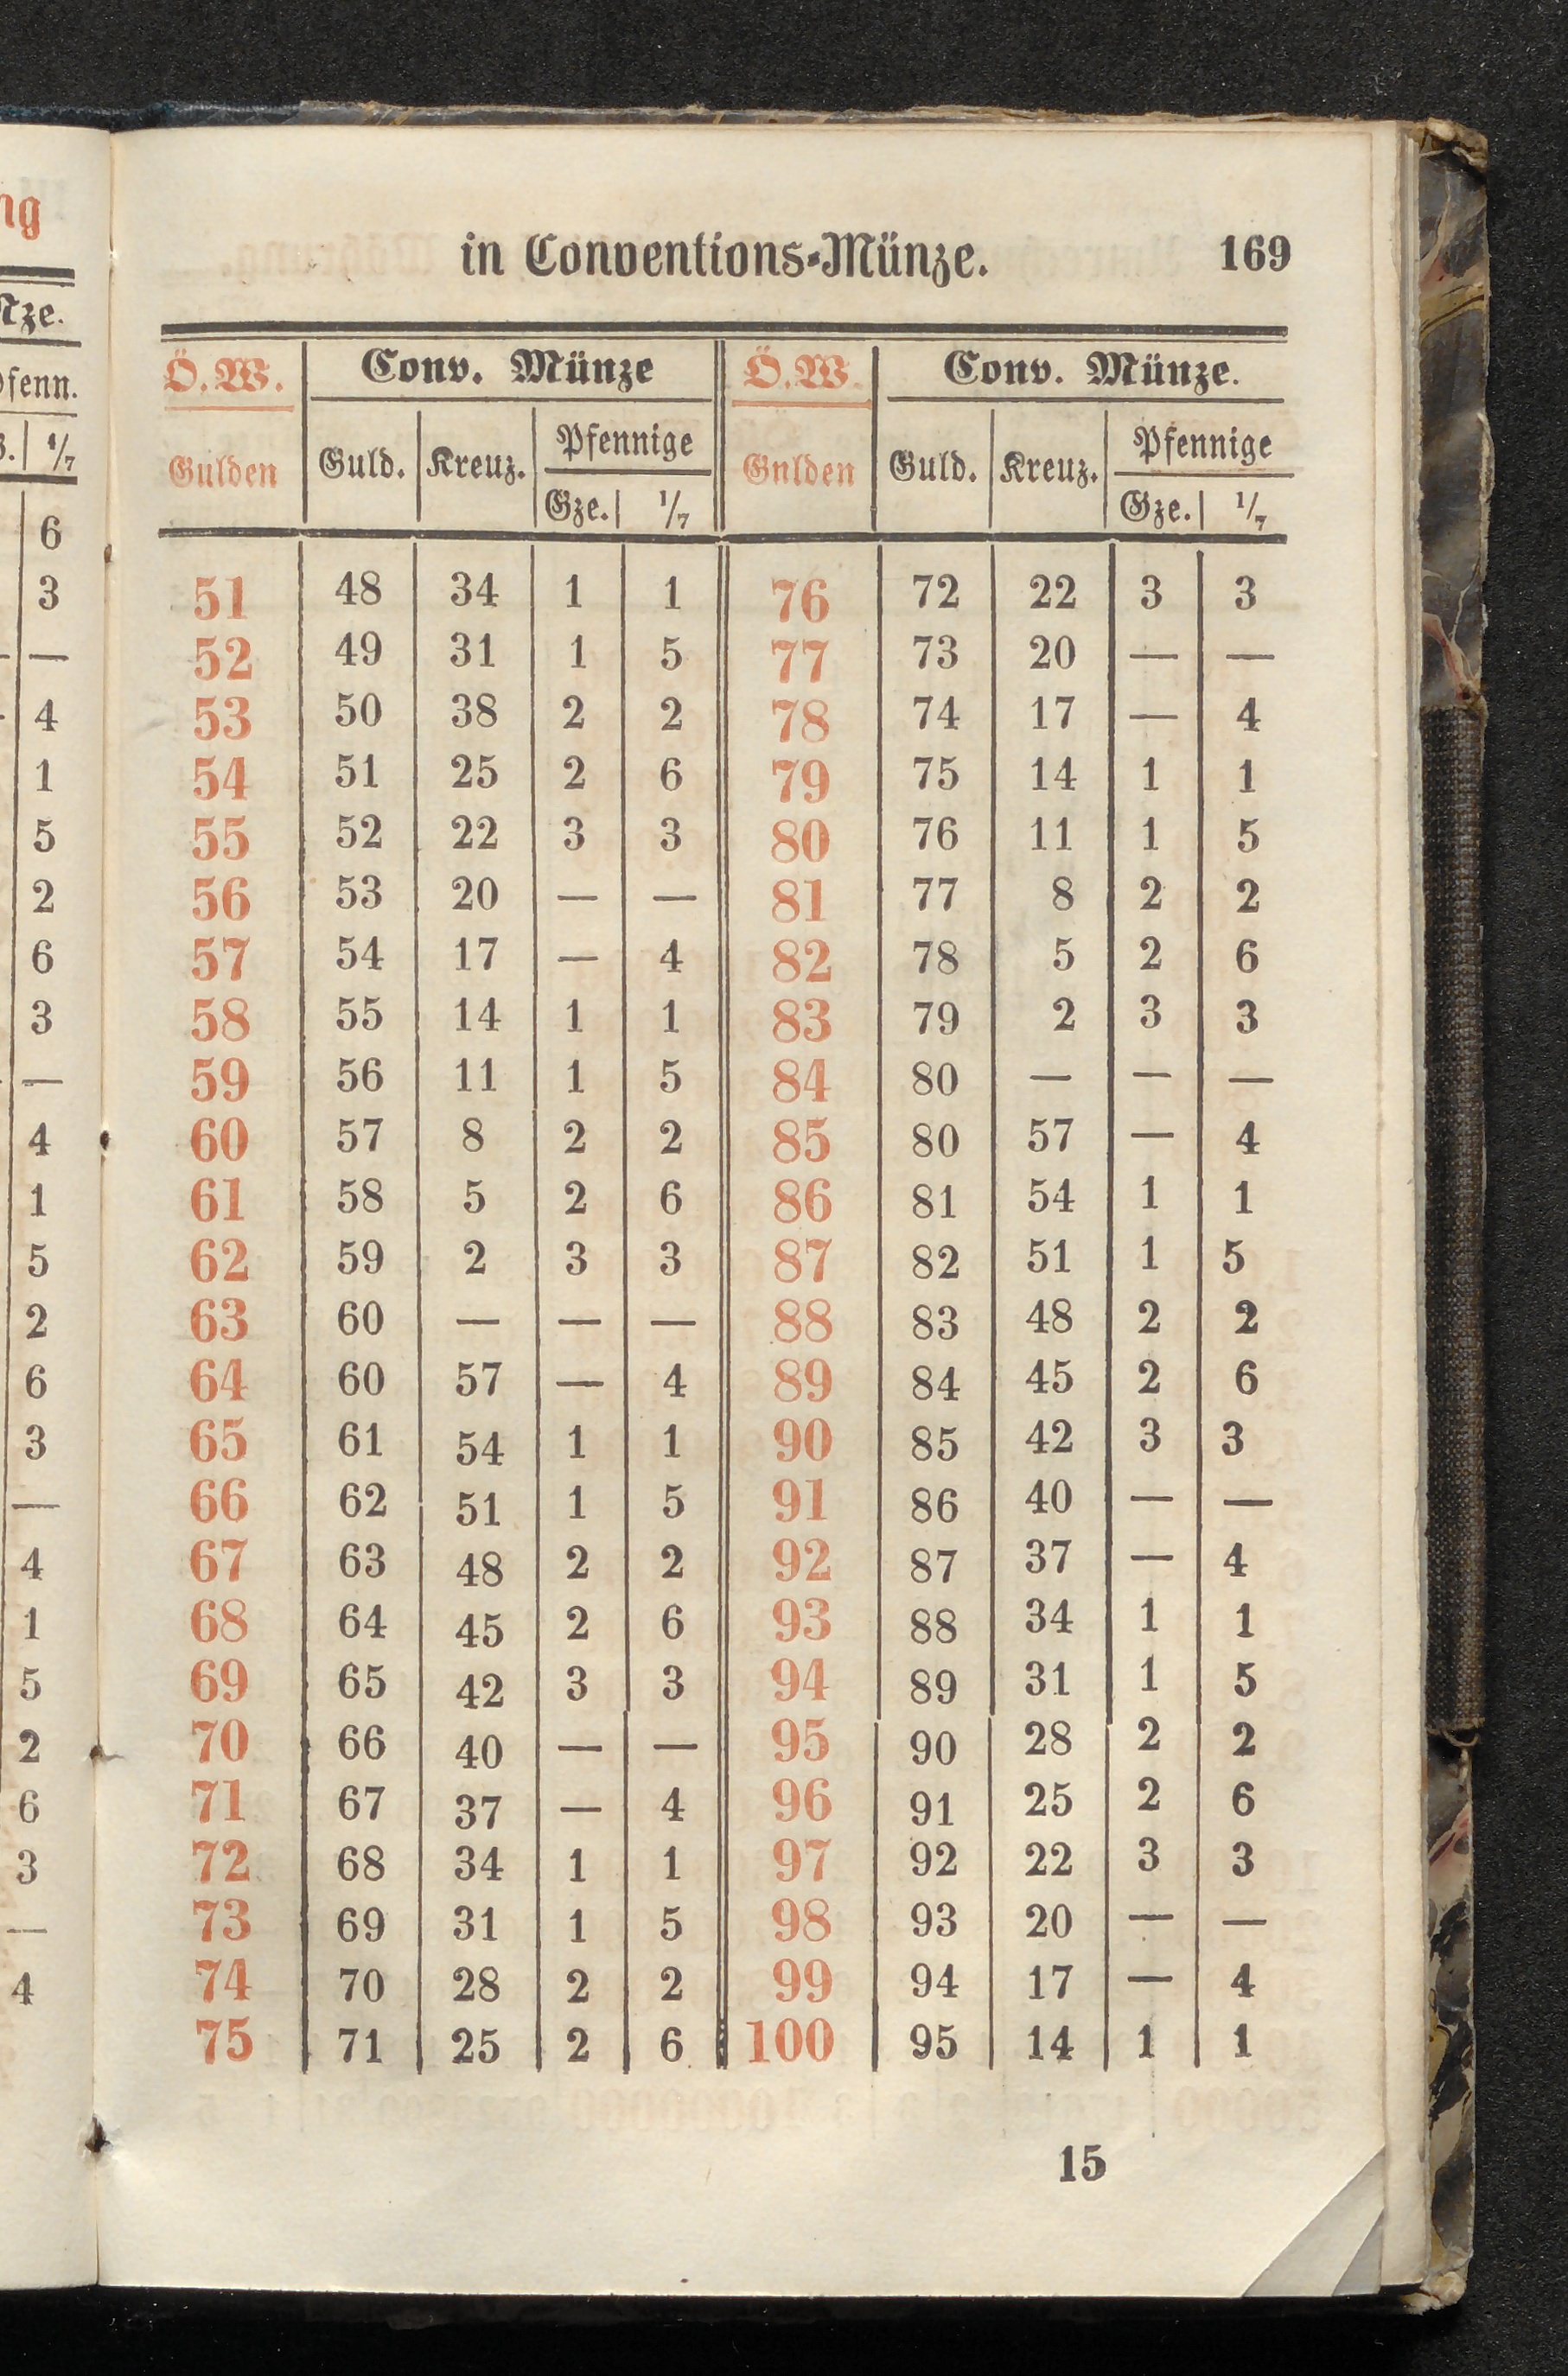 in Conventions-Münze. 169
Ö.W. Conv. Münze Ö.W. Conv. Münze.
Gulden Guld. Kreuz. Pfennige Gnlden Guld. Kreuz. Pfennige
Gze. 1/7 Gze. 1/7
51 48 34 1 1 76 72 22 3 3
52 49 31 1 5 77 73 20 — —
53 50 38 2 2 78 74 17 — 4
54 51 25 2 6 79 75 14 1 1
55 52 22 3 3 80 76 11 1 5
56 53 20 — — 81 77 8 2 2
57 54 17 — 4 82 78 5 2 6
58 55 14 1 1 83 79 2 3 3
59 56 11 1 5 84 80 — — —
60 57 8 2 2 85 80 57 — 4
61 58 5 2 6 86 81 54 1 1
62 59 2 3 3 87 82 51 1 5
63 60 — — — 88 83 48 2 2
64 60 57 — 4 89 84 45 2 6
65 61 54 1 1 90 85 42 3 3
66 62 51 1 5 91 86 40 — —
67 63 48 2 2 92 87 37 — 4
68 64 45 2 6 93 88 34 1 1
69 65 42 3 3 94 89 31 1 5
70 66 40 — — 95 90 28 2 2
71 67 37 — 4 96 91 25 2 6
72 68 34 1 1 97 92 22 3 3
73 69 31 1 5 98 93 20 — —
74 70 28 2 2 99 94 17 — 4
75 71 25 2 6 100 95 14 1 1
15